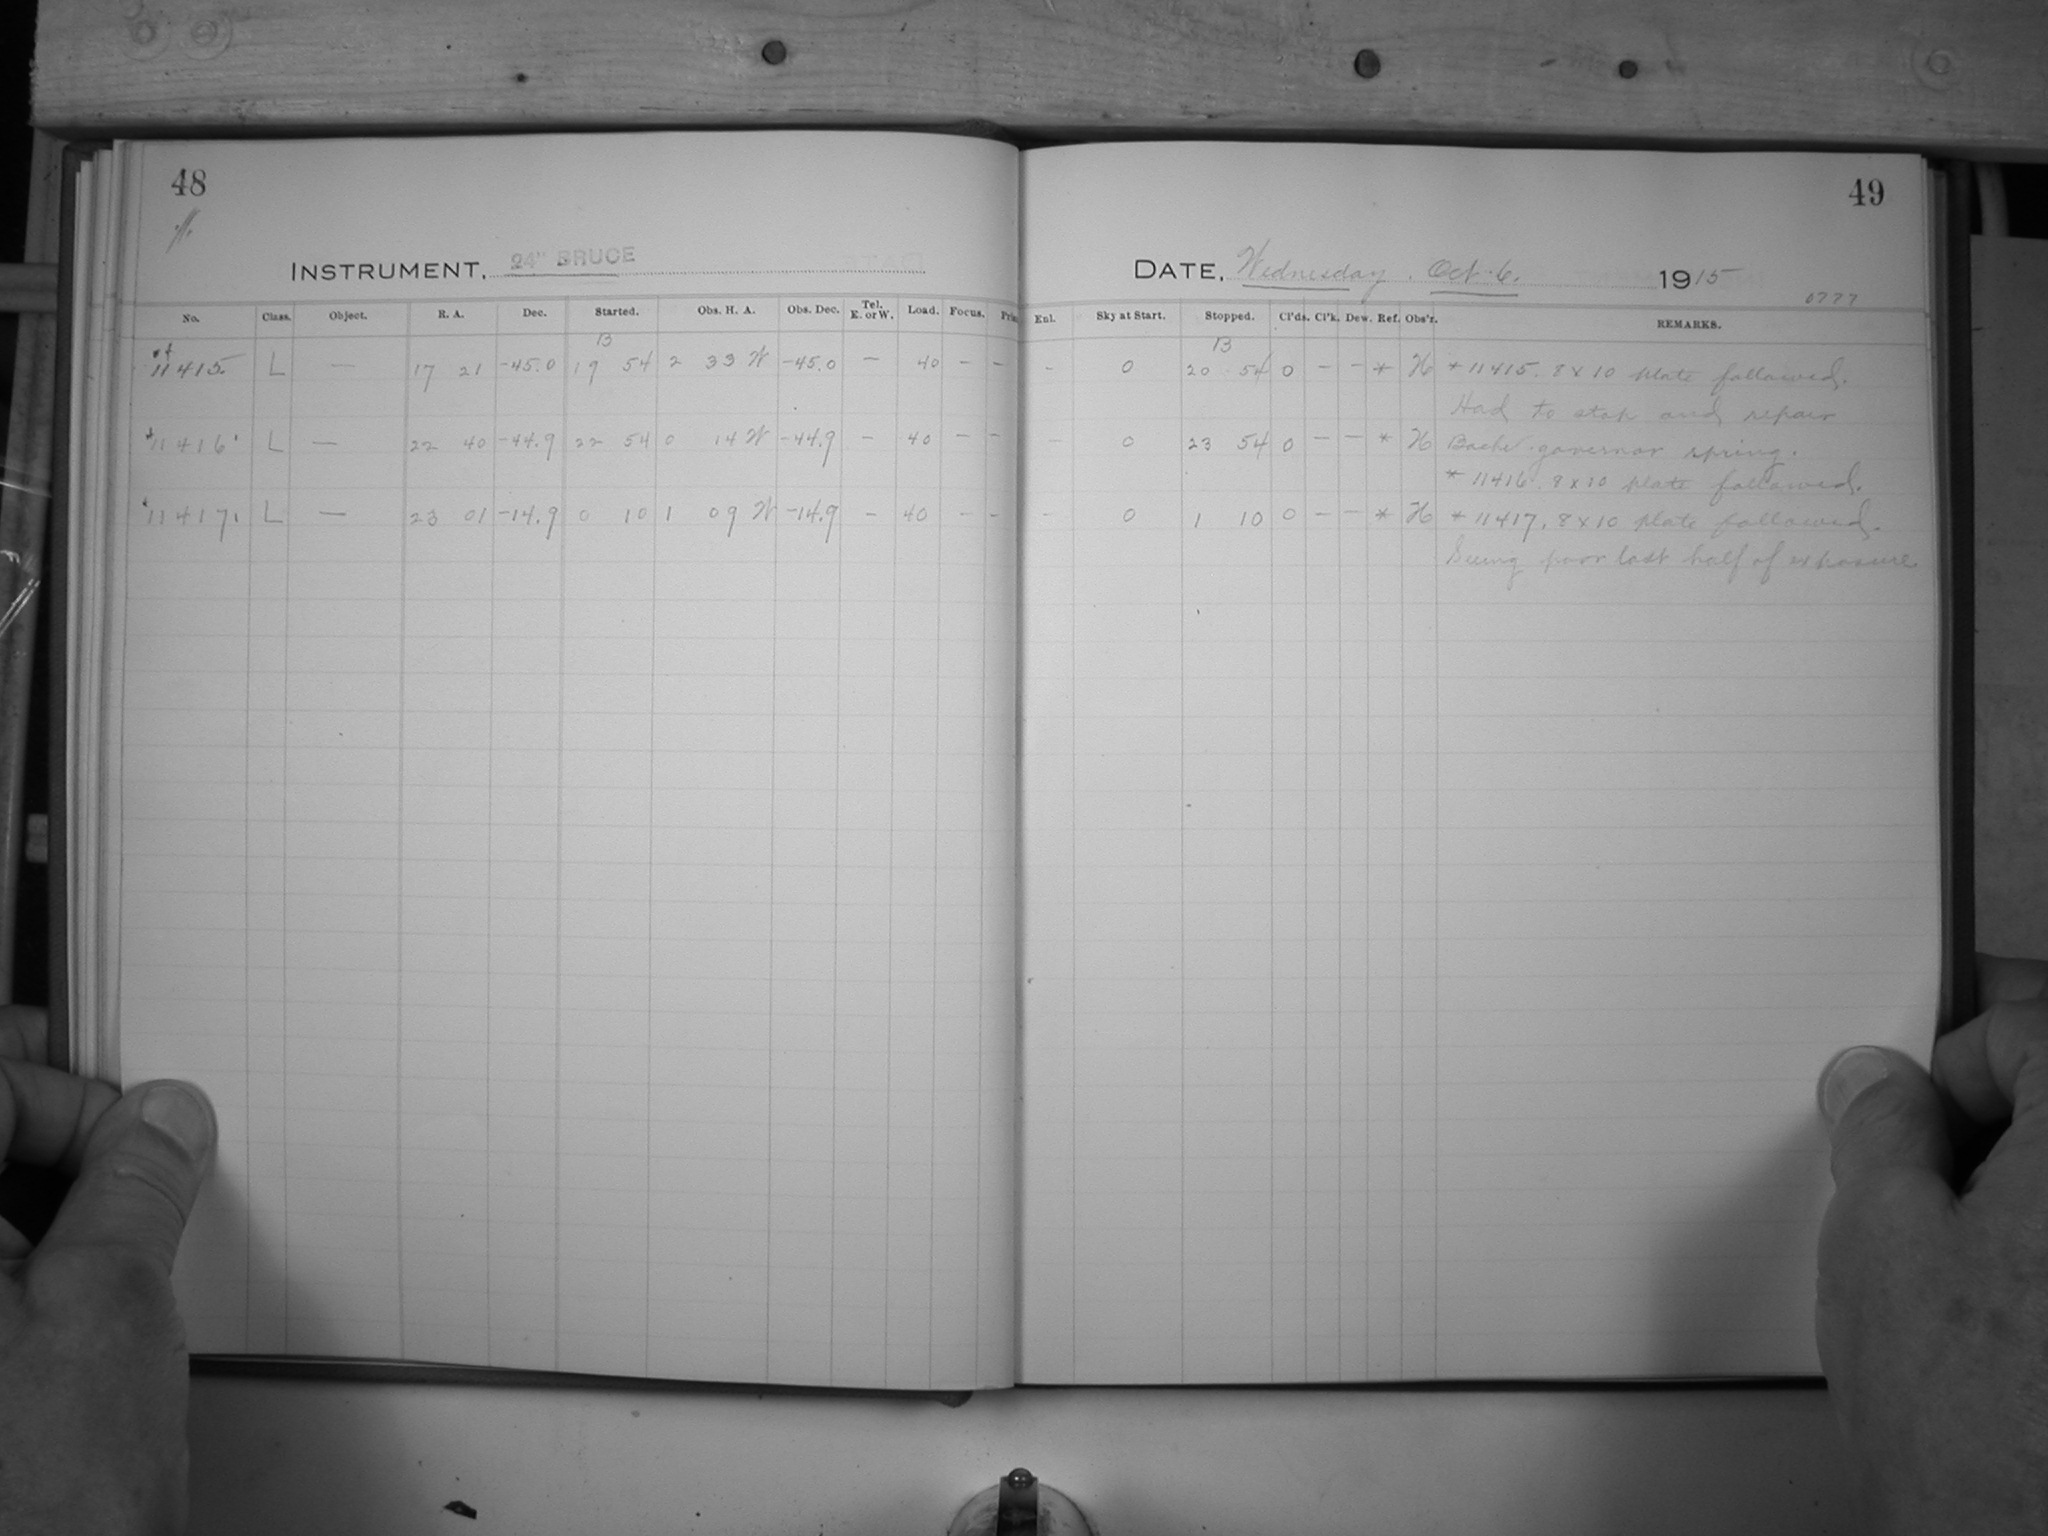 48
INSTRUMENT, 24" BRUCE
No. Class. Object. R. A. Dec. Started. Obs. H. A. Obs. Dec. Tel. E. or W. Load. Focus.
B
11415 L — 17 21 -45.0 19 54 2 33 W -45.0 — 40 — —
11416 L — 22 40 -44.9 22 54 0 14 W -44.9 — 40 — —
11417 L — 23 01 -14.9 0 10 1 09 W -14.9 — 40 — —
49
DATE, Wednesday. Oct. 6. 1915
0777
Enl. Sky at Start. Stopped. Cl'ds. Cl'k. Dew. Ref. Obs'r. REMARKS.
B
- 0 20 54 0 — — * H * 11415. 8 x 10 plate followed.
Had to stop and repair
— 0 23 54 0 — — * H Bache governor spring.
* 11416. 8 x 10 plate followed.
- 0 1 10 0 — — * H * 11417. 8 x 10 plate followed.
Seeing poor last half of exposure